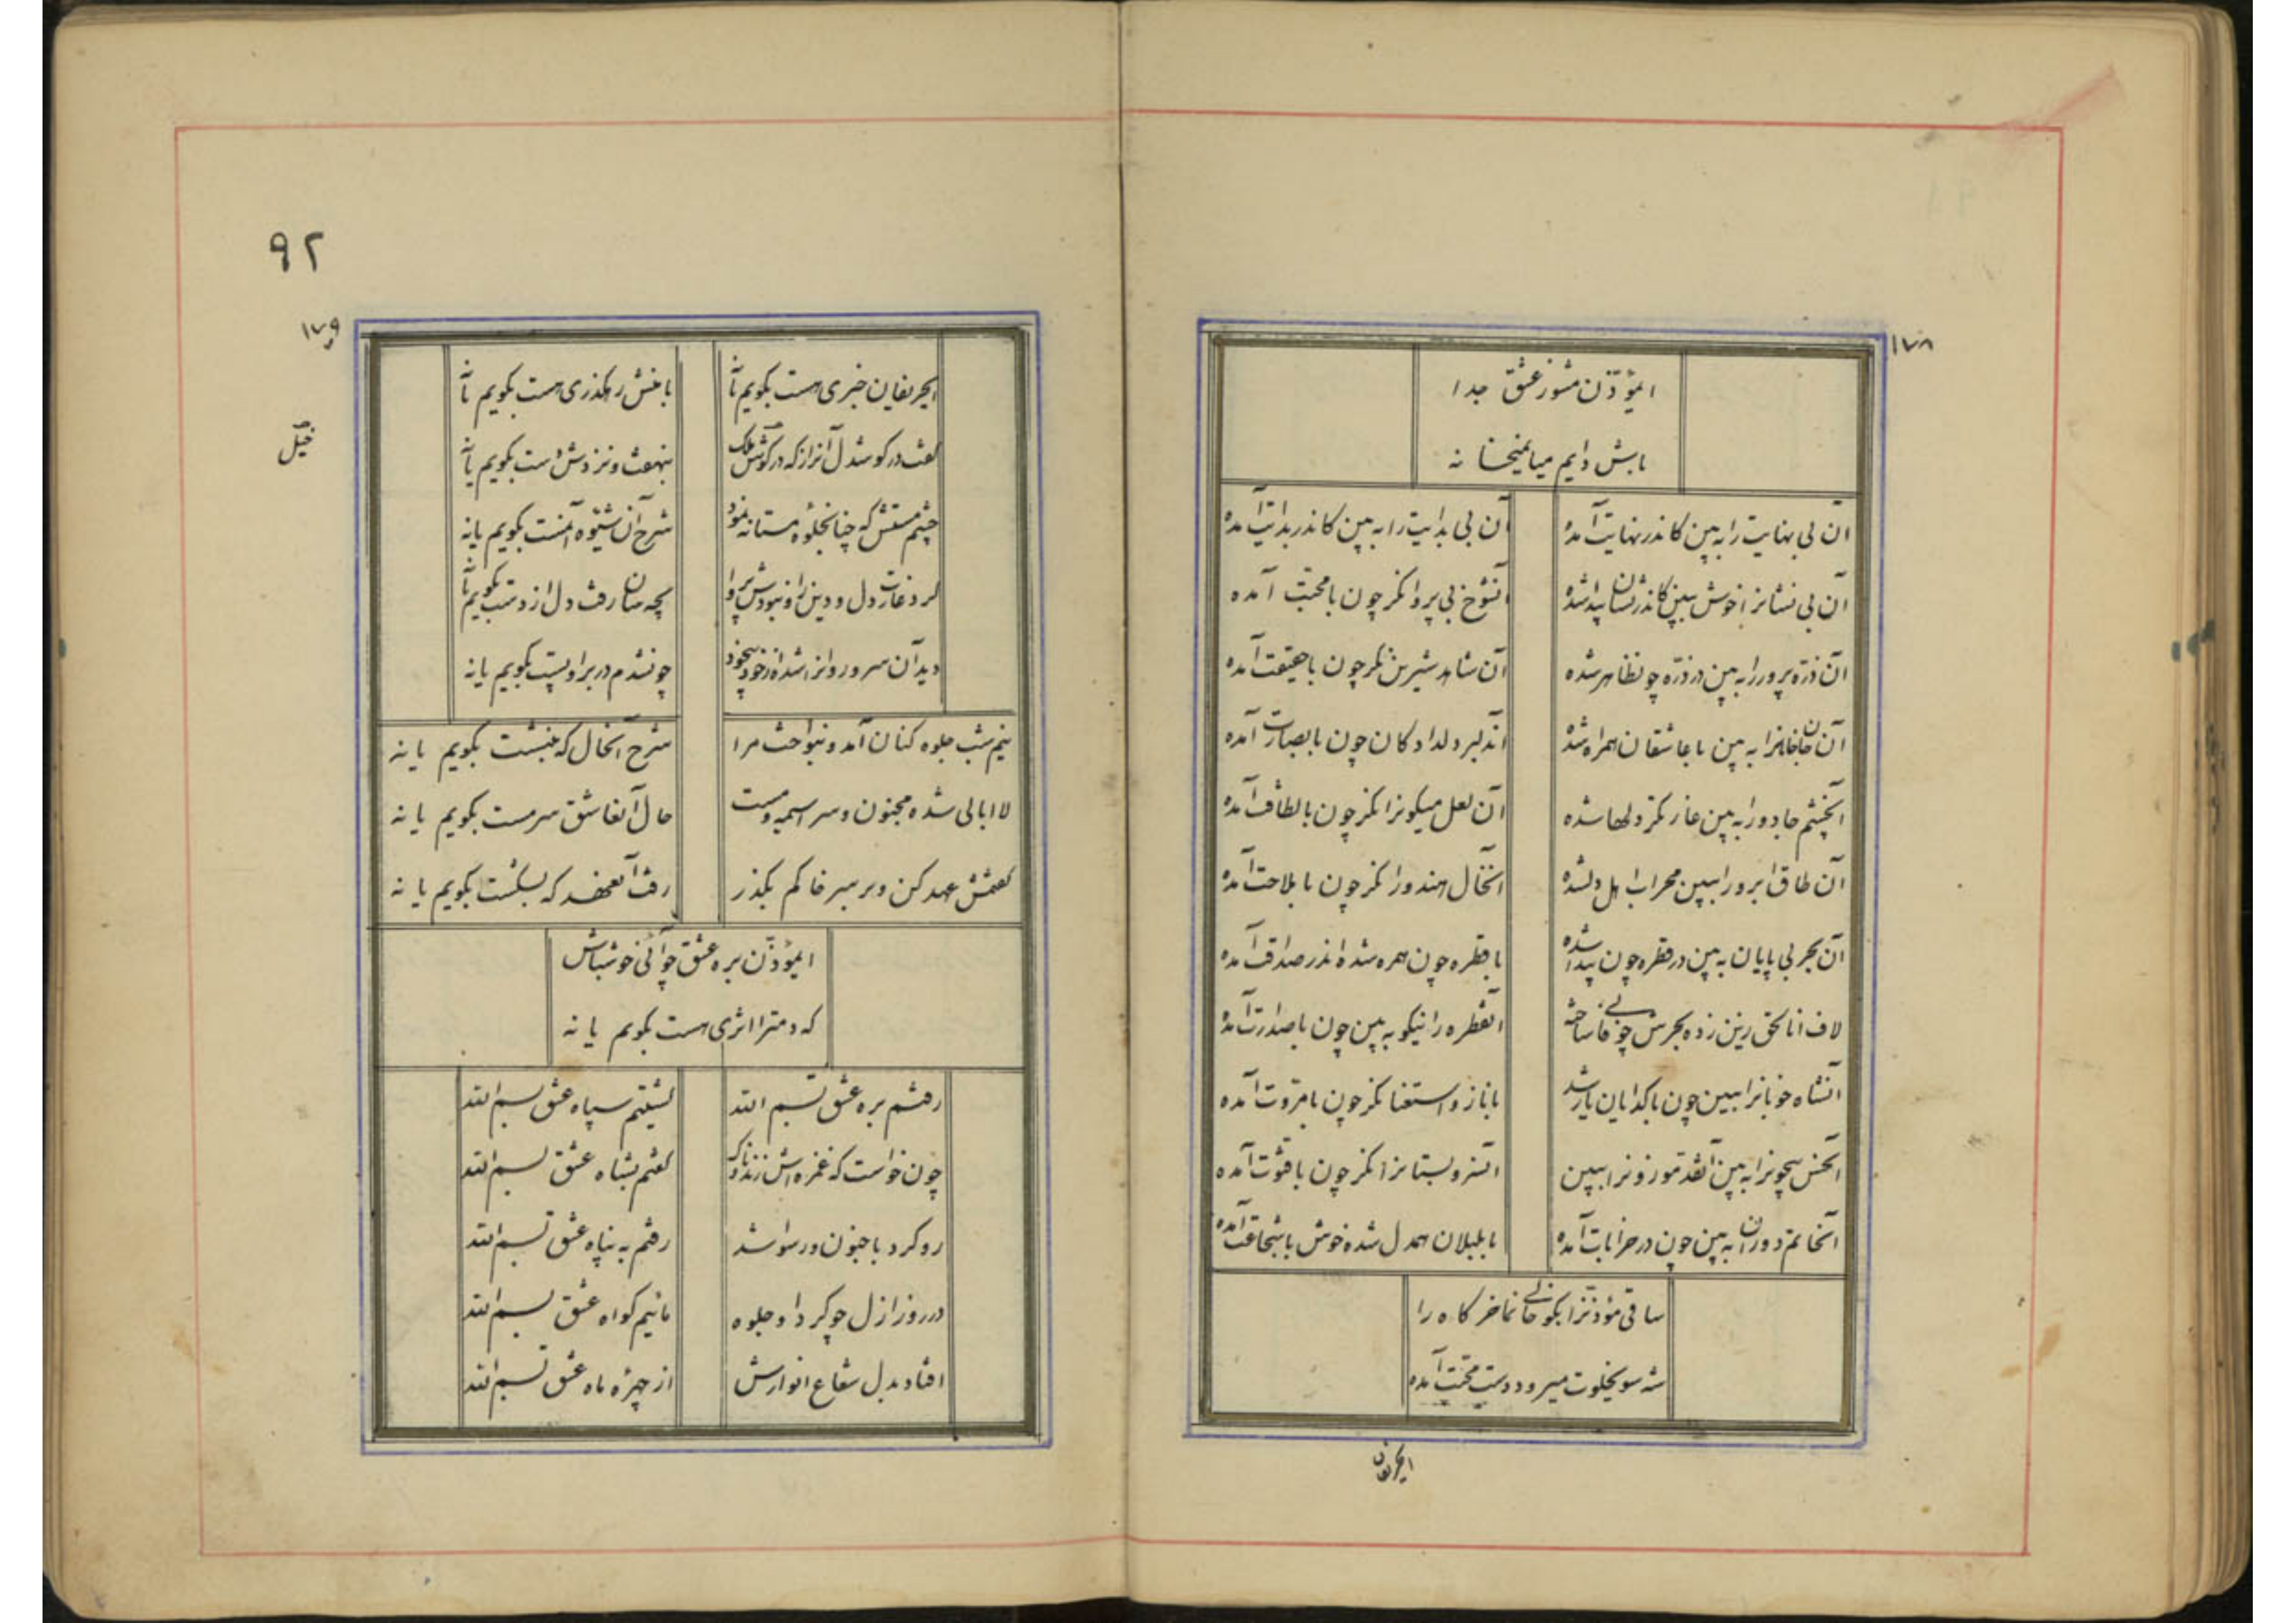 ١٧٨
ایمؤذن مشو ز عشق جدا
باش دایم میانمیخانه
آن بی نهایت را به بین کاندر نهایت آمده
آن بی بدایت را به بین کاندر بدایت آمده
آن بی نشانرا خوش ببین کاندر نشان پیدا شده
آنشوخ بی پروا نکر چون با محبت آمده
آن ذره پرور را به بین در ذره چونظاهر شده
آن شاهد شیرین نکر چون با حقیقت آمده
آن جانجانانرا به بین با عاشقان همراه شده
آندلبر دلدادکان چون با بصارت آمده
آنچشم جادو را به بین غارتکر دلها شده
آن لعل میکونرا نکر چون با لطافت آمده
آن طاق ابرو را ببین محراب اهل دلشده
آنخال هندو را نکر چون با ملاحت آمده
آن بحر بی پایان به بین در قطره چون پیدا شده
با قطره چون همره شده اندر صداقت آمده
لاف انا الحق زین زده بحرش چو فانی ساخته
آنقطره را نیکو به بین چون با صدارت آمده
آنشاه خوبانرا ببین چون با کدایان یار شد
با ناز و استغنا نکر چون با مروت آمده
آنحسن بیچونرا به بین آنقد موزونرا ببین
آنسرو بستانرا نکر چون با فتوت آمده
آنخاتم دورانرا به بین چون در خرابات آمده
با بلبلان همدل شده خوش با شجاعت آمده
ساقی مؤذنرا بکو خالی نما خرکاه را
شه سویخلوت میرود دست محبت آمده
ایحریفان
٩٢
١٧٩
خیل
ایحریفان خبری هست بکویم یا نه
با غمش رهکذری هست بکویم یا نه
کفت در کوشدل آنراز که در کوش ملک
بنهفت و نزدش است بکویم یا نه
چشم مستش که چنانجلوه مستانه نمود
شرح آن شیوه آنمست بکویم یا نه
کرد غارت دل و دین را و نبودش پروا
بچه سان رفت دل از دست بکویم یا نه
دید آن سرو روانرا شد از خود بیخود
چونشدم در بر او پست بکویم یا نه
نیم شب جلوه کنان آمد و بنواخت مرا
شرح آنحال که بنشست بکویم یا نه
لا ابالی شده مجنون و سراسیمه و مست
حال آنعاشق سرمست بکویم یا نه
کفتمش عهد کن و بر سر خاکم بکذر
رفت آنعهد که بشکست بکویم یا نه
ایمؤذن بره عشق چو آئی خوشباش
که دمترا اثری هست بکویم یا نه
رفتم بره عشق بسم الله
کشتیم سپاه عشق بسم الله
چون خواست که غمزه اش زند ناوک
کفتم بشاه عشق بسم الله
رو کرد با جنون و رسوا شد
رفتم به پناه عشق بسم الله
در روز ازل چو کرد او جلوه
مائیم کواه عشق بسم الله
افتاد بدل شعاع انوارش
از چهره ماه عشق بسم الله